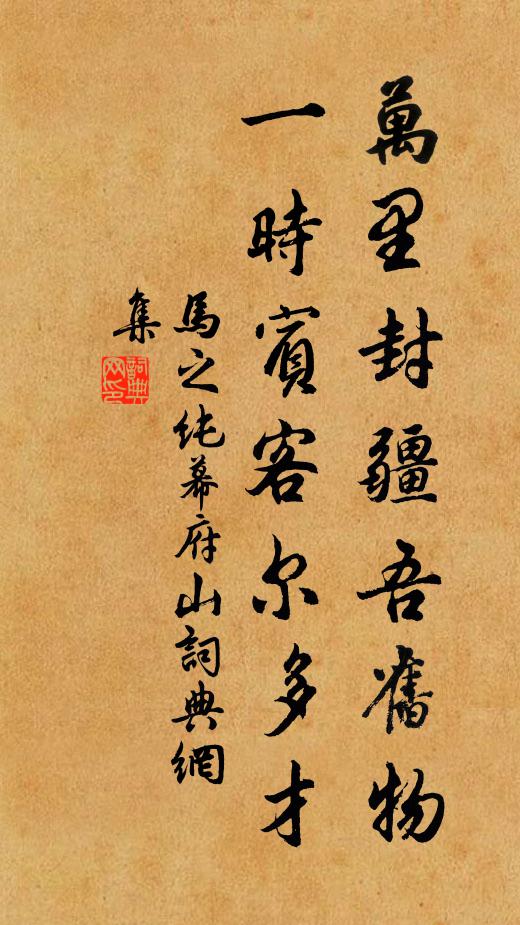 萬里封疆吾舊物
一時賓客尔多才
馬之纯幕府山詞典網
集
詞典
网印